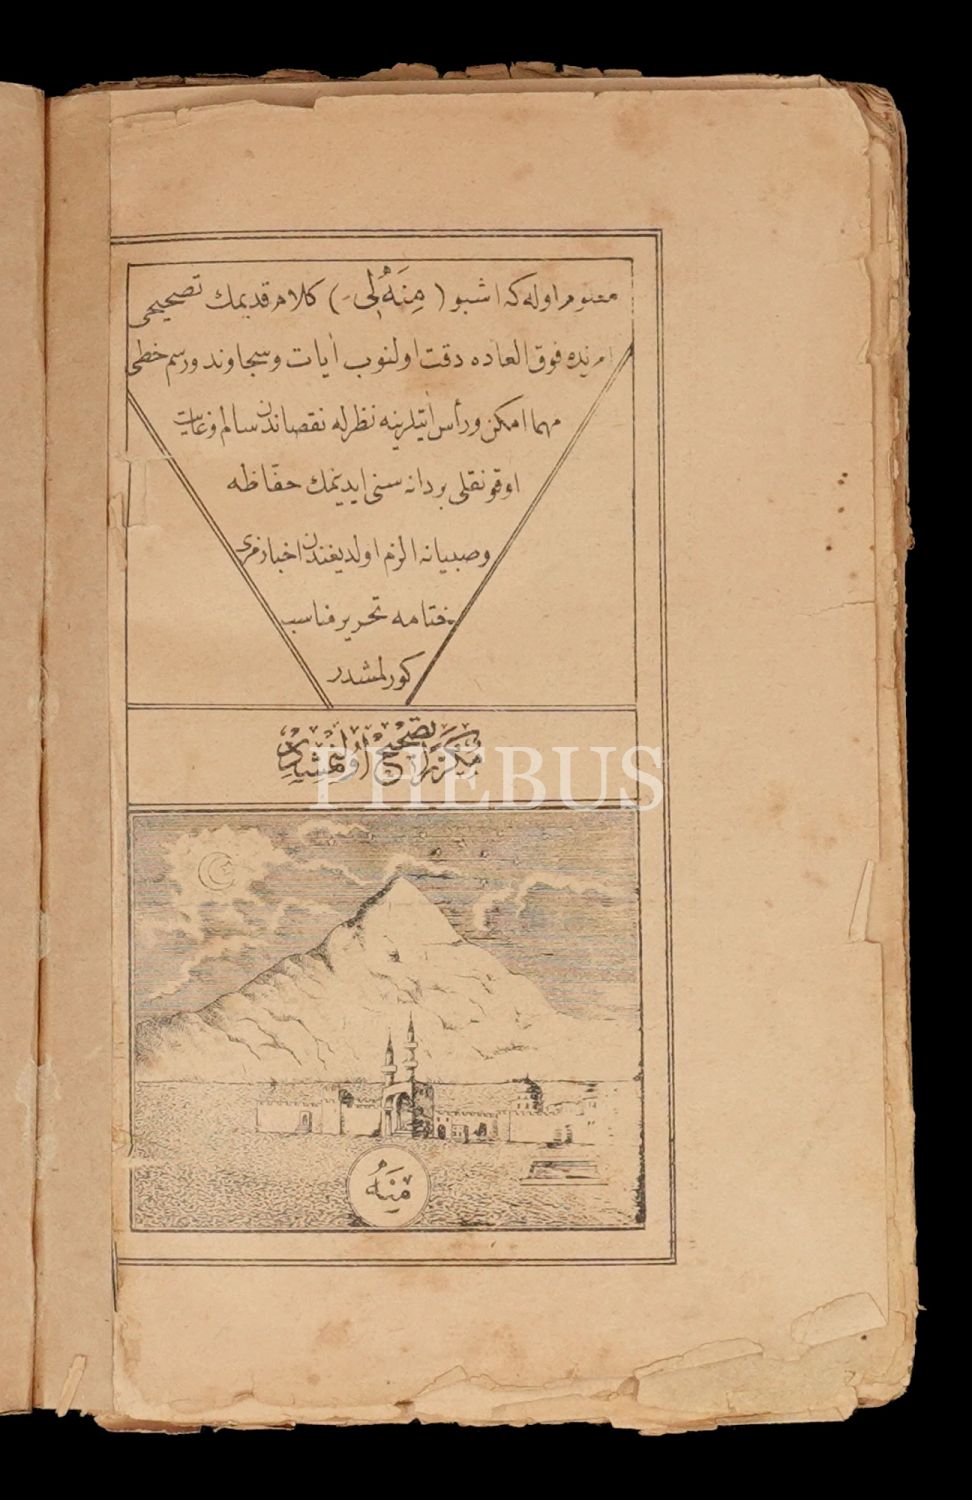 معلوم اوله که اشبو ( مِنَهْلِی ) کلام قدیمك تصحیحی
امرنده فوق العاده دقت اولنوب آیات وسجاوند ورسم خطی
مهما امکن ورأس آیتلرینه نظرله نقصاندن سالم
اوقونقلی بردانه سنی ایدینمك حفاظه
وصبیانه الزم اولدیغندن اخبار
ختامه تحریر مناسب
کورلمشدر
مکرراً تصحیح اولنمشدر
PHEBUS
مِنَهْ